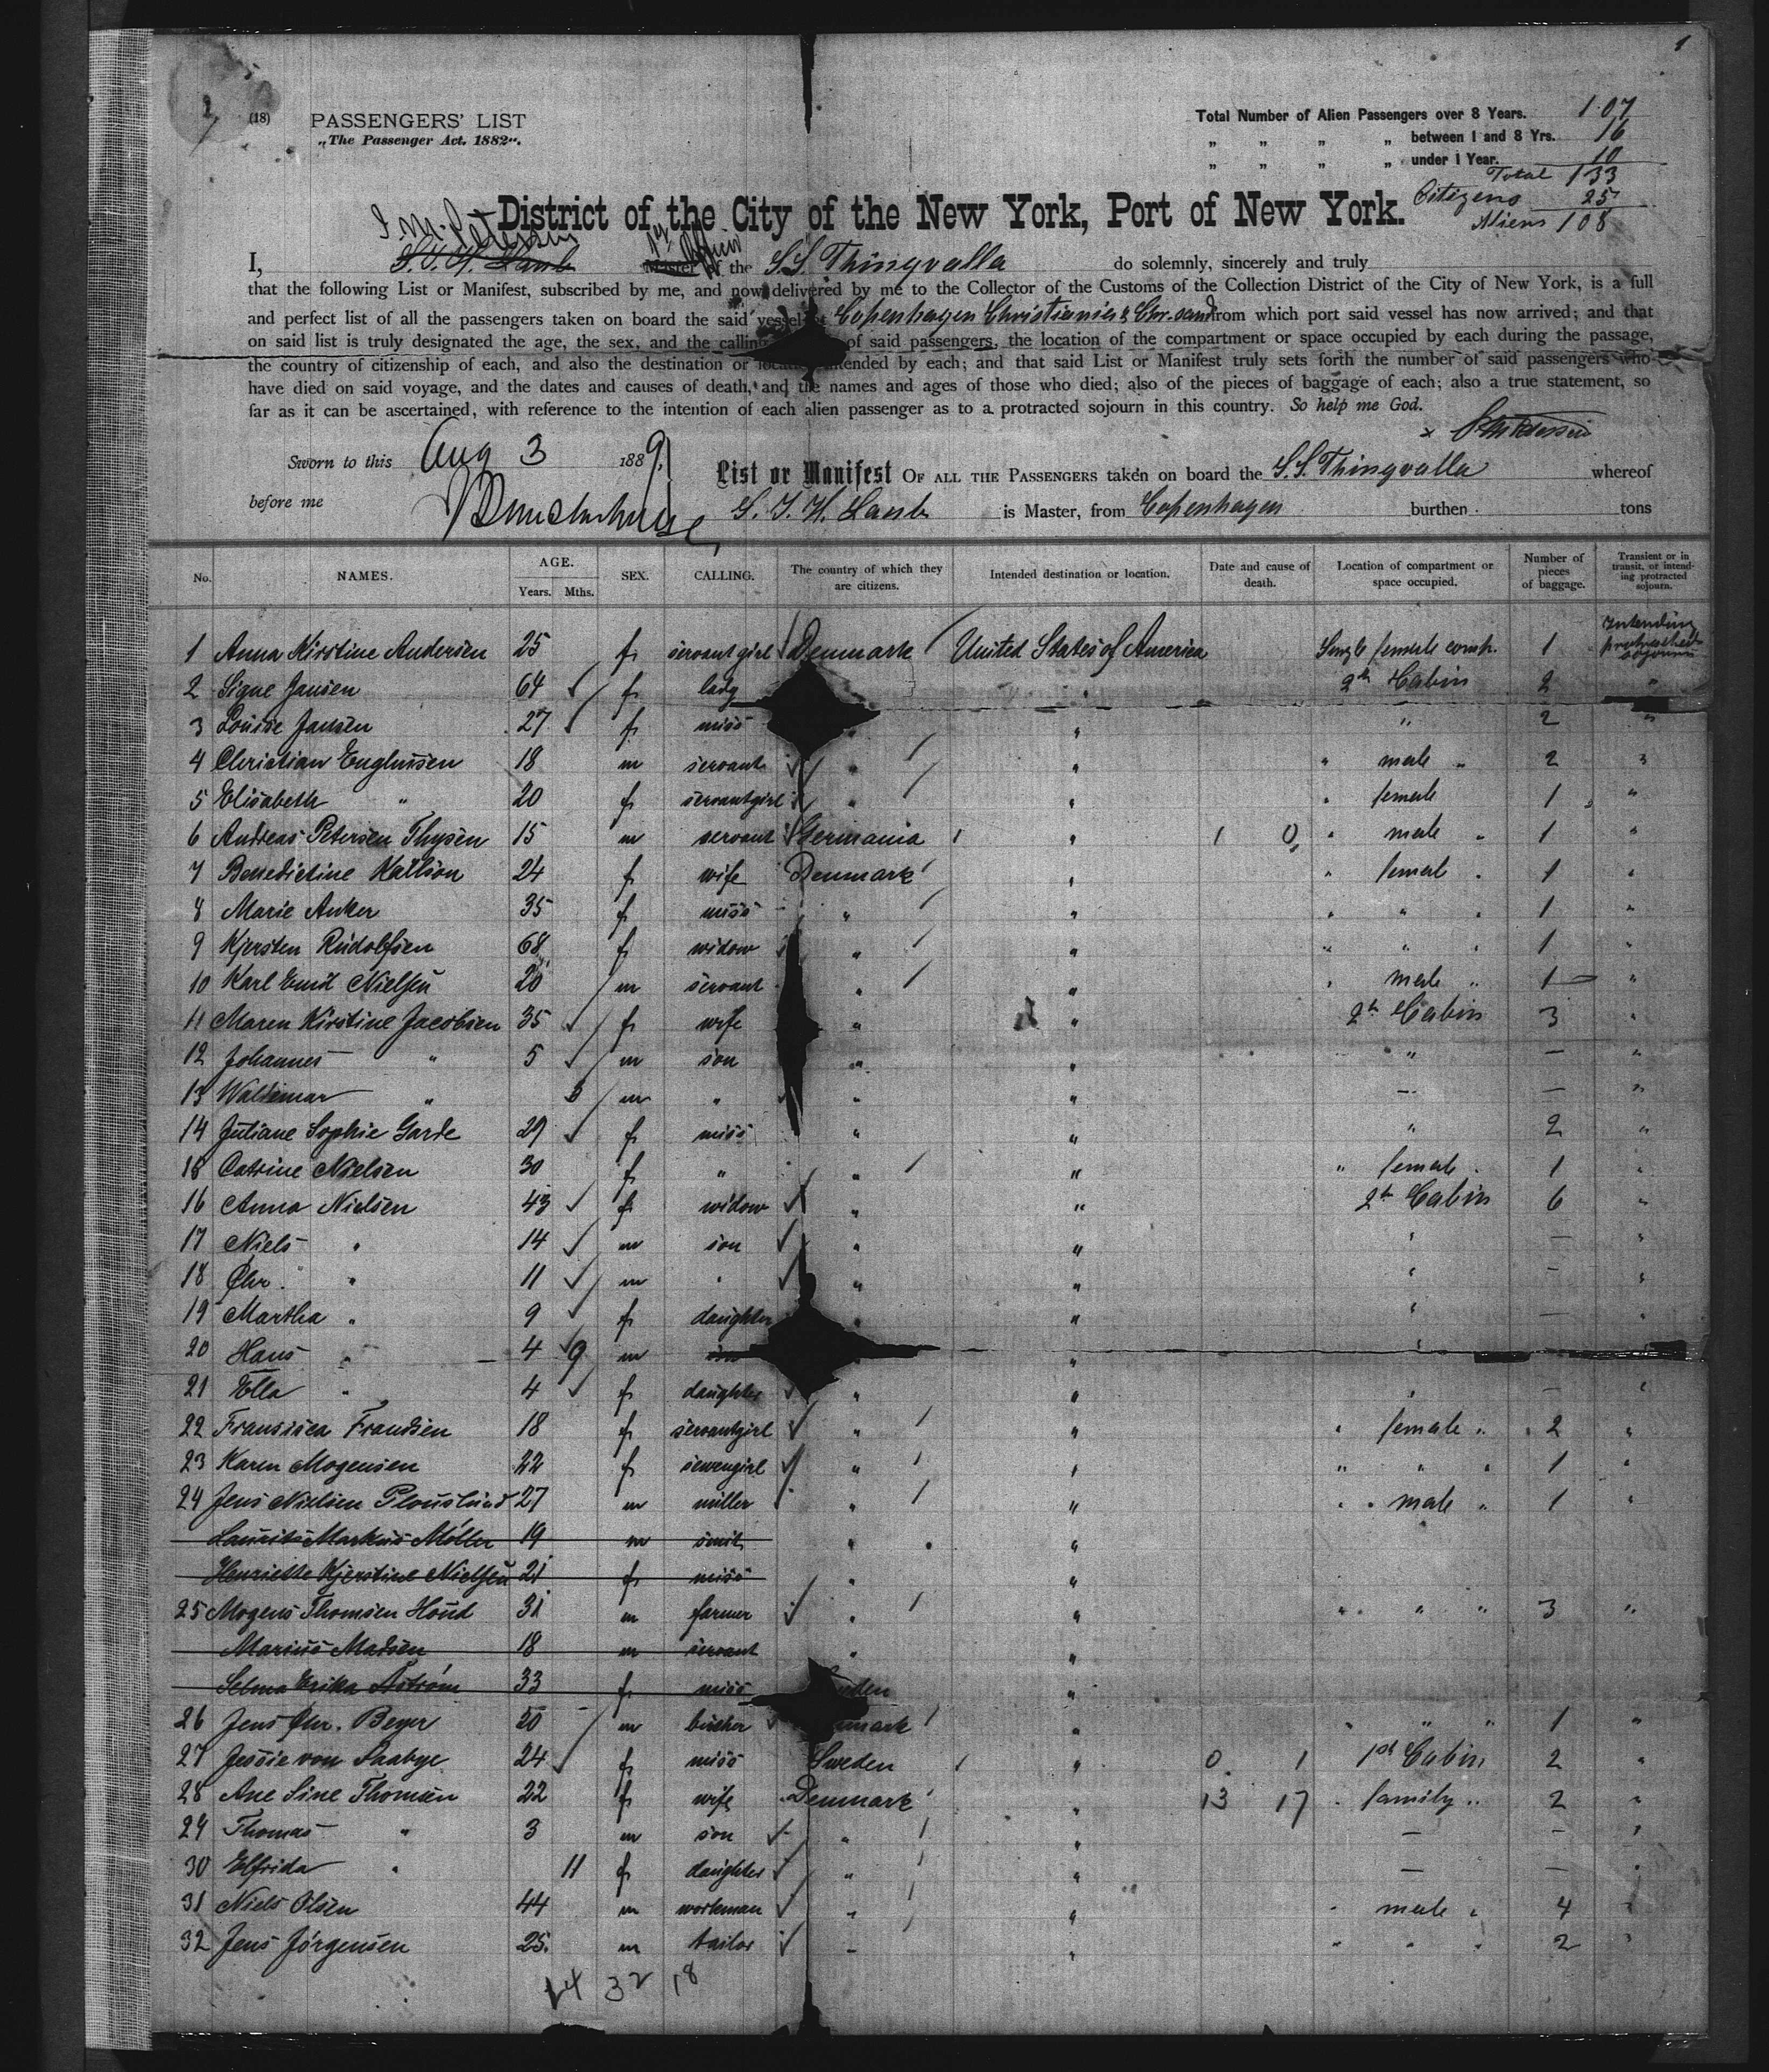 1
(18) PASSENGERS' LIST
„The Passenger Act. 1882“.
Total Number of Alien Passengers over 8 Years. 107
„ „ „ „ between 1 and 8 Yrs. 16
„ „ „ „ under 1 Year. 10
Total 133
Citizens 25
Aliens 108
District of the City of the New York, Port of New York.
I. M. Petersen
I, S. T. H. Laub Master of the S.S. Thingvalla do solemnly, sincerely and truly
that the following List or Manifest, subscribed by me, and now delivered by me to the Collector of the Customs of the Collection District of the City of New York, is a full
and perfect list of all the passengers taken on board the said vessel at Copenhagen Christiania & Chr.sand from which port said vessel has now arrived; and that
on said list is truly designated the age, the sex, and the calling of said passengers, the location of the compartment or space occupied by each during the passage,
the country of citizenship of each, and also the destination or location intended by each; and that said List or Manifest truly sets forth the number of said passengers who
have died on said voyage, and the dates and causes of death, and the names and ages of those who died; also of the pieces of baggage of each; also a true statement, so
far as it can be ascertained, with reference to the intention of each alien passenger as to a protracted sojourn in this country. So help me God.
Sworn to this Aug 3 1889
before me
List or Manifest OF ALL THE PASSENGERS taken on board the S.S. Thingvalla whereof
S. T. H. Laub is Master, from Copenhagen burthen tons
No. NAMES. AGE. Years. Mths. SEX. CALLING. The country of which they are citizens. Intended destination or location. Date and cause of death. Location of compartment or space occupied. Number of pieces of baggage. Transient or in transit, or intending protracted sojourn.
1 Anna Kirstine Andersen 25 f servantgirl Denmark United States of America Single female comp. 1 Intending protracted sojourn
2 Signe Jansen 64 f lady " 2th Cabin 2 "
3 Louise Jansen 27 f miss " " " 2 "
4 Christian Enghusen 18 m servant " " " male " 2 "
5 Elisabeth " 20 f servantgirl " " " female 1 "
6 Andreas Petersen Thysen 15 m servant Germania " 1 0 " male " 1 "
7 Benedictine Kallson 24 f wife Denmark " " femal " 1 "
8 Marie Anker 35 f miss " " " " " 1 "
9 Kjersten Rudolfsen 68 f widow " " " " " 1 "
10 Karl Emil Nielsen 20 m servant " " " male " 1 "
11 Maren Kirstine Jacobsen 35 f wife " " 2th Cabin 3 "
12 Johannes " 5 m son " " " — "
13 Waldemar " 3 m " " " — — "
14 Juliane Sophie Garde 29 f miss " " " 2 "
15 Catrine Nielsen 30 f " " " " female " 1 "
16 Anna Nielsen 43 f widow " " 2th Cabin 6 "
17 Niels " 14 m son " " " — "
18 Chr. " 11 m " " " " — "
19 Martha " 9 f daughter " " " — "
20 Hans " 4 9 m son " " "
21 Ella " 4 f daughter " " " — "
22 Fransisca Frandsen 18 f servantgirl " " " female " 2 "
23 Karen Mogensen 22 f sewengirl " " " " " 1 "
24 Jens Nielsen Plouslund 27 m miller " " " male " 1 "
Laurits Markus Möller 19 m smit " "
Henriette Kjerstine Nielsen 21 f miss " "
25 Mogens Thomsen Houd 31 m farmer " " " " " 3 "
Marius Madsen 18 m servant " "
Selma Erika Åström 33 f miss Sweden "
26 Jens Chr. Beyer 50 m bucher Denmark " " " " 1 "
27 Jessie von Saabye 24 f miss Sweden " 0 1 1st Cabin 2 "
28 Ane Sine Thomsen 22 f wife Denmark " 13 17 " family " 2 "
29 Thomas " 3 m son " " — — "
30 Elfrida " 11 f daughter " " — — "
31 Niels Olsen 44 m workman " " " male " 4 "
32 Jens Jörgensen 25 m tailor " " " " " 2 "
14 32 18